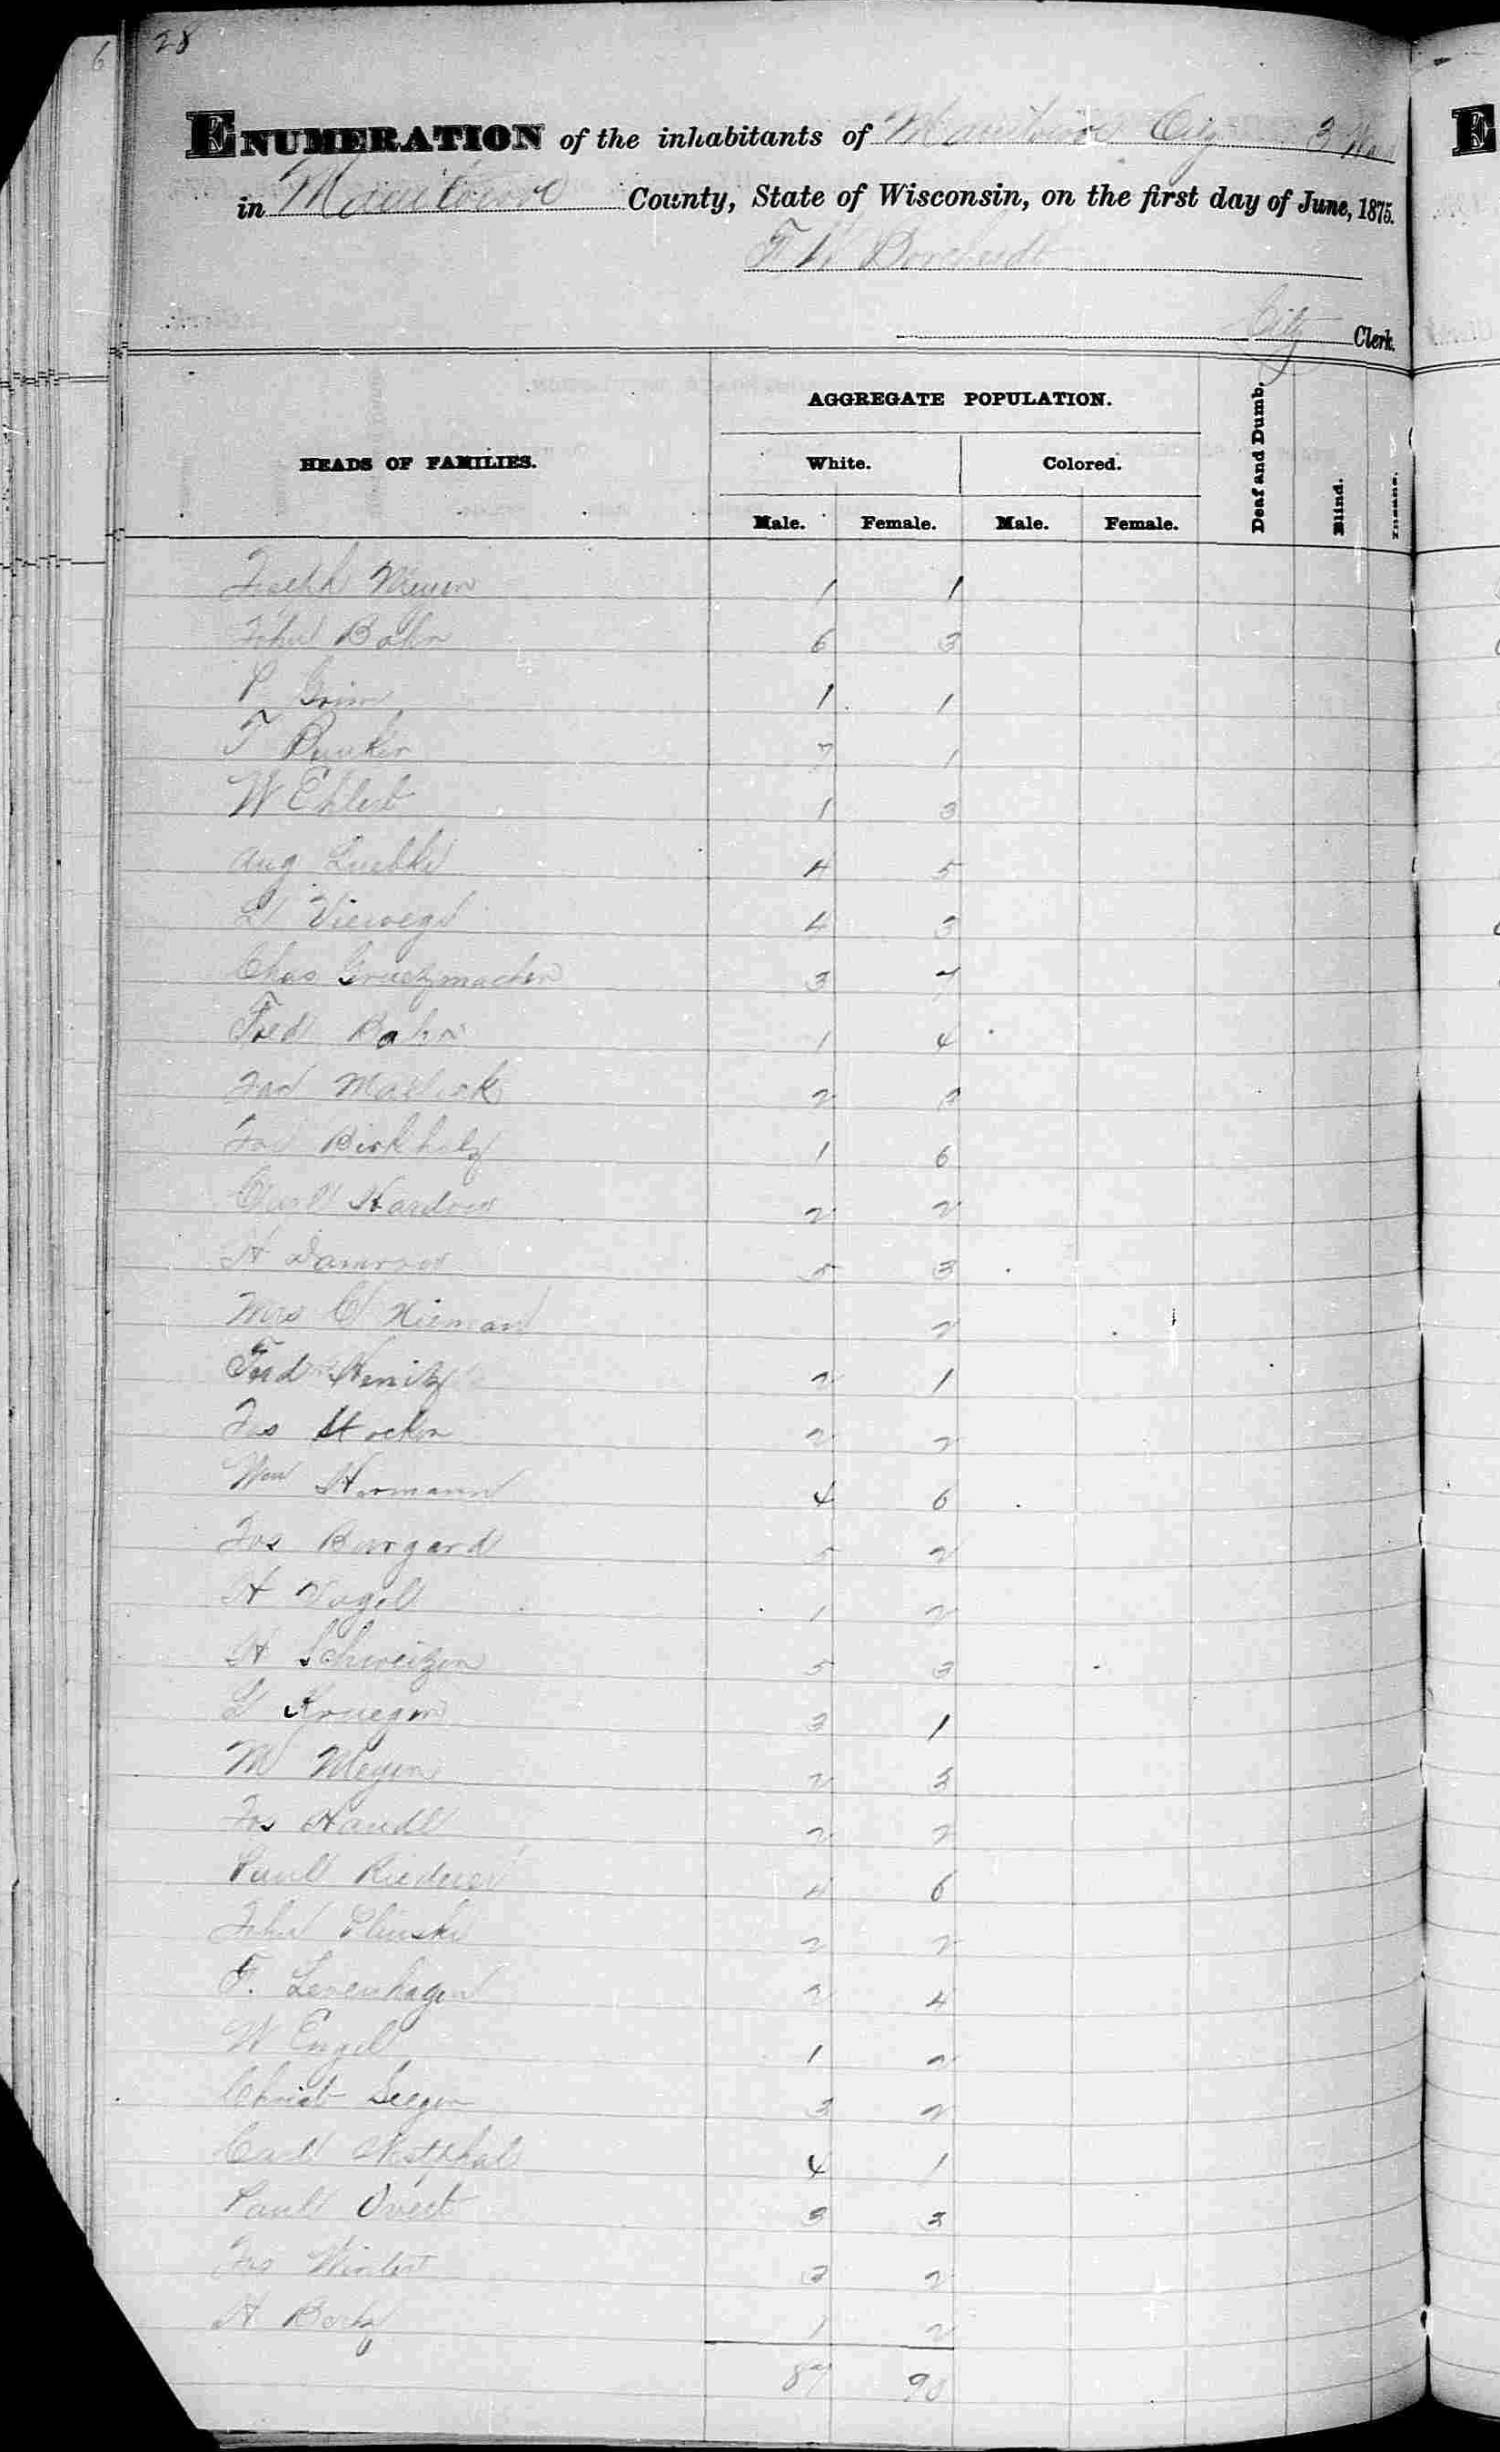 28
6
ENUMERATION of the inhabitants of Manitowoc City 3 Ward
in Manitowoc County, State of Wisconsin, on the first day of June, 1875.
F. W. Borcherdt
City Clerk.
HEADS OF FAMILIES.
AGGREGATE POPULATION.
White. Colored.
Male. Female. Male. Female.
Deaf and Dumb.
Blind.
Insane.
Joseph Meyer 1 1
John Bahr 6 3
P Grim 1 1
F Bunker 7 1
W Ehlert 1 3
Aug Luebke 4 5
L Vieweg 4 3
Chas Gruetzmacher 3 7
Fred Bahr 1 4
2
Birkholz 1 6
2 2
H Damrow 5 3
Mrs C Nieman 2
Fred Wenitz 2 1
Jos Stocker 2 2
Wm Hermann 4 6
Jos Burgard 5 2
H Vogel 1 2
H Schweitzer 5 3
L Krueger 3 1
M Meyer 2 3
Jos Handl 2 2
Paul Riederer 4 6
John 2 2
F. Levenhagen 2 4
W Engel 1 2
Christ Seeger 3 2
Carl Westphal 4 1
Paul 3 3
Jos 3 2
H 1 2
87 90
E